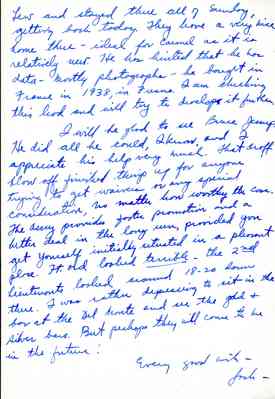 Lew and stayed there all of Sunday,
getting back today. They have a very nice
home there - ideal for Carmel as it is
relatively new. He has hinted that he has
data - mostly photographs - he bought in
France in 1938, in France. I am checking
this lead and will try to develop it further.
I will be glad to see Bruce Jessup.
He did all he could, I know, and I
appreciate his help very much. That
blow off finished things up for anyone
trying to get waivers or any special
consideration, no matter how worthy the case.
The Army provides faster promotion and a
better deal in the long run, provided you
get yourself initially situated in a pleasant
place. Ft. Ord looked terrible - the 2nd
lieutenants looked around 18-20 hours
there. I was rather depressing to sit in the
bar at the Del Monte and see the gold &
silver bars. But perhaps they will come to me
in the future!
Every good wish -
Josh -